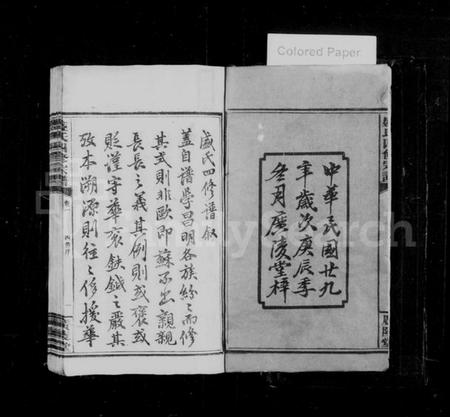 Colored Paper
中華民國廿九
年歲次庚辰季
冬月廣陵堂梓
盛氏四修譜叙
蓋自譜學昌明各族紛〻而修
其式則非歐即蘇不出親親
長長之義其例則或褒或
貶謹守華袞鈇鉞之嚴其
攷本溯源則往〻侈援華